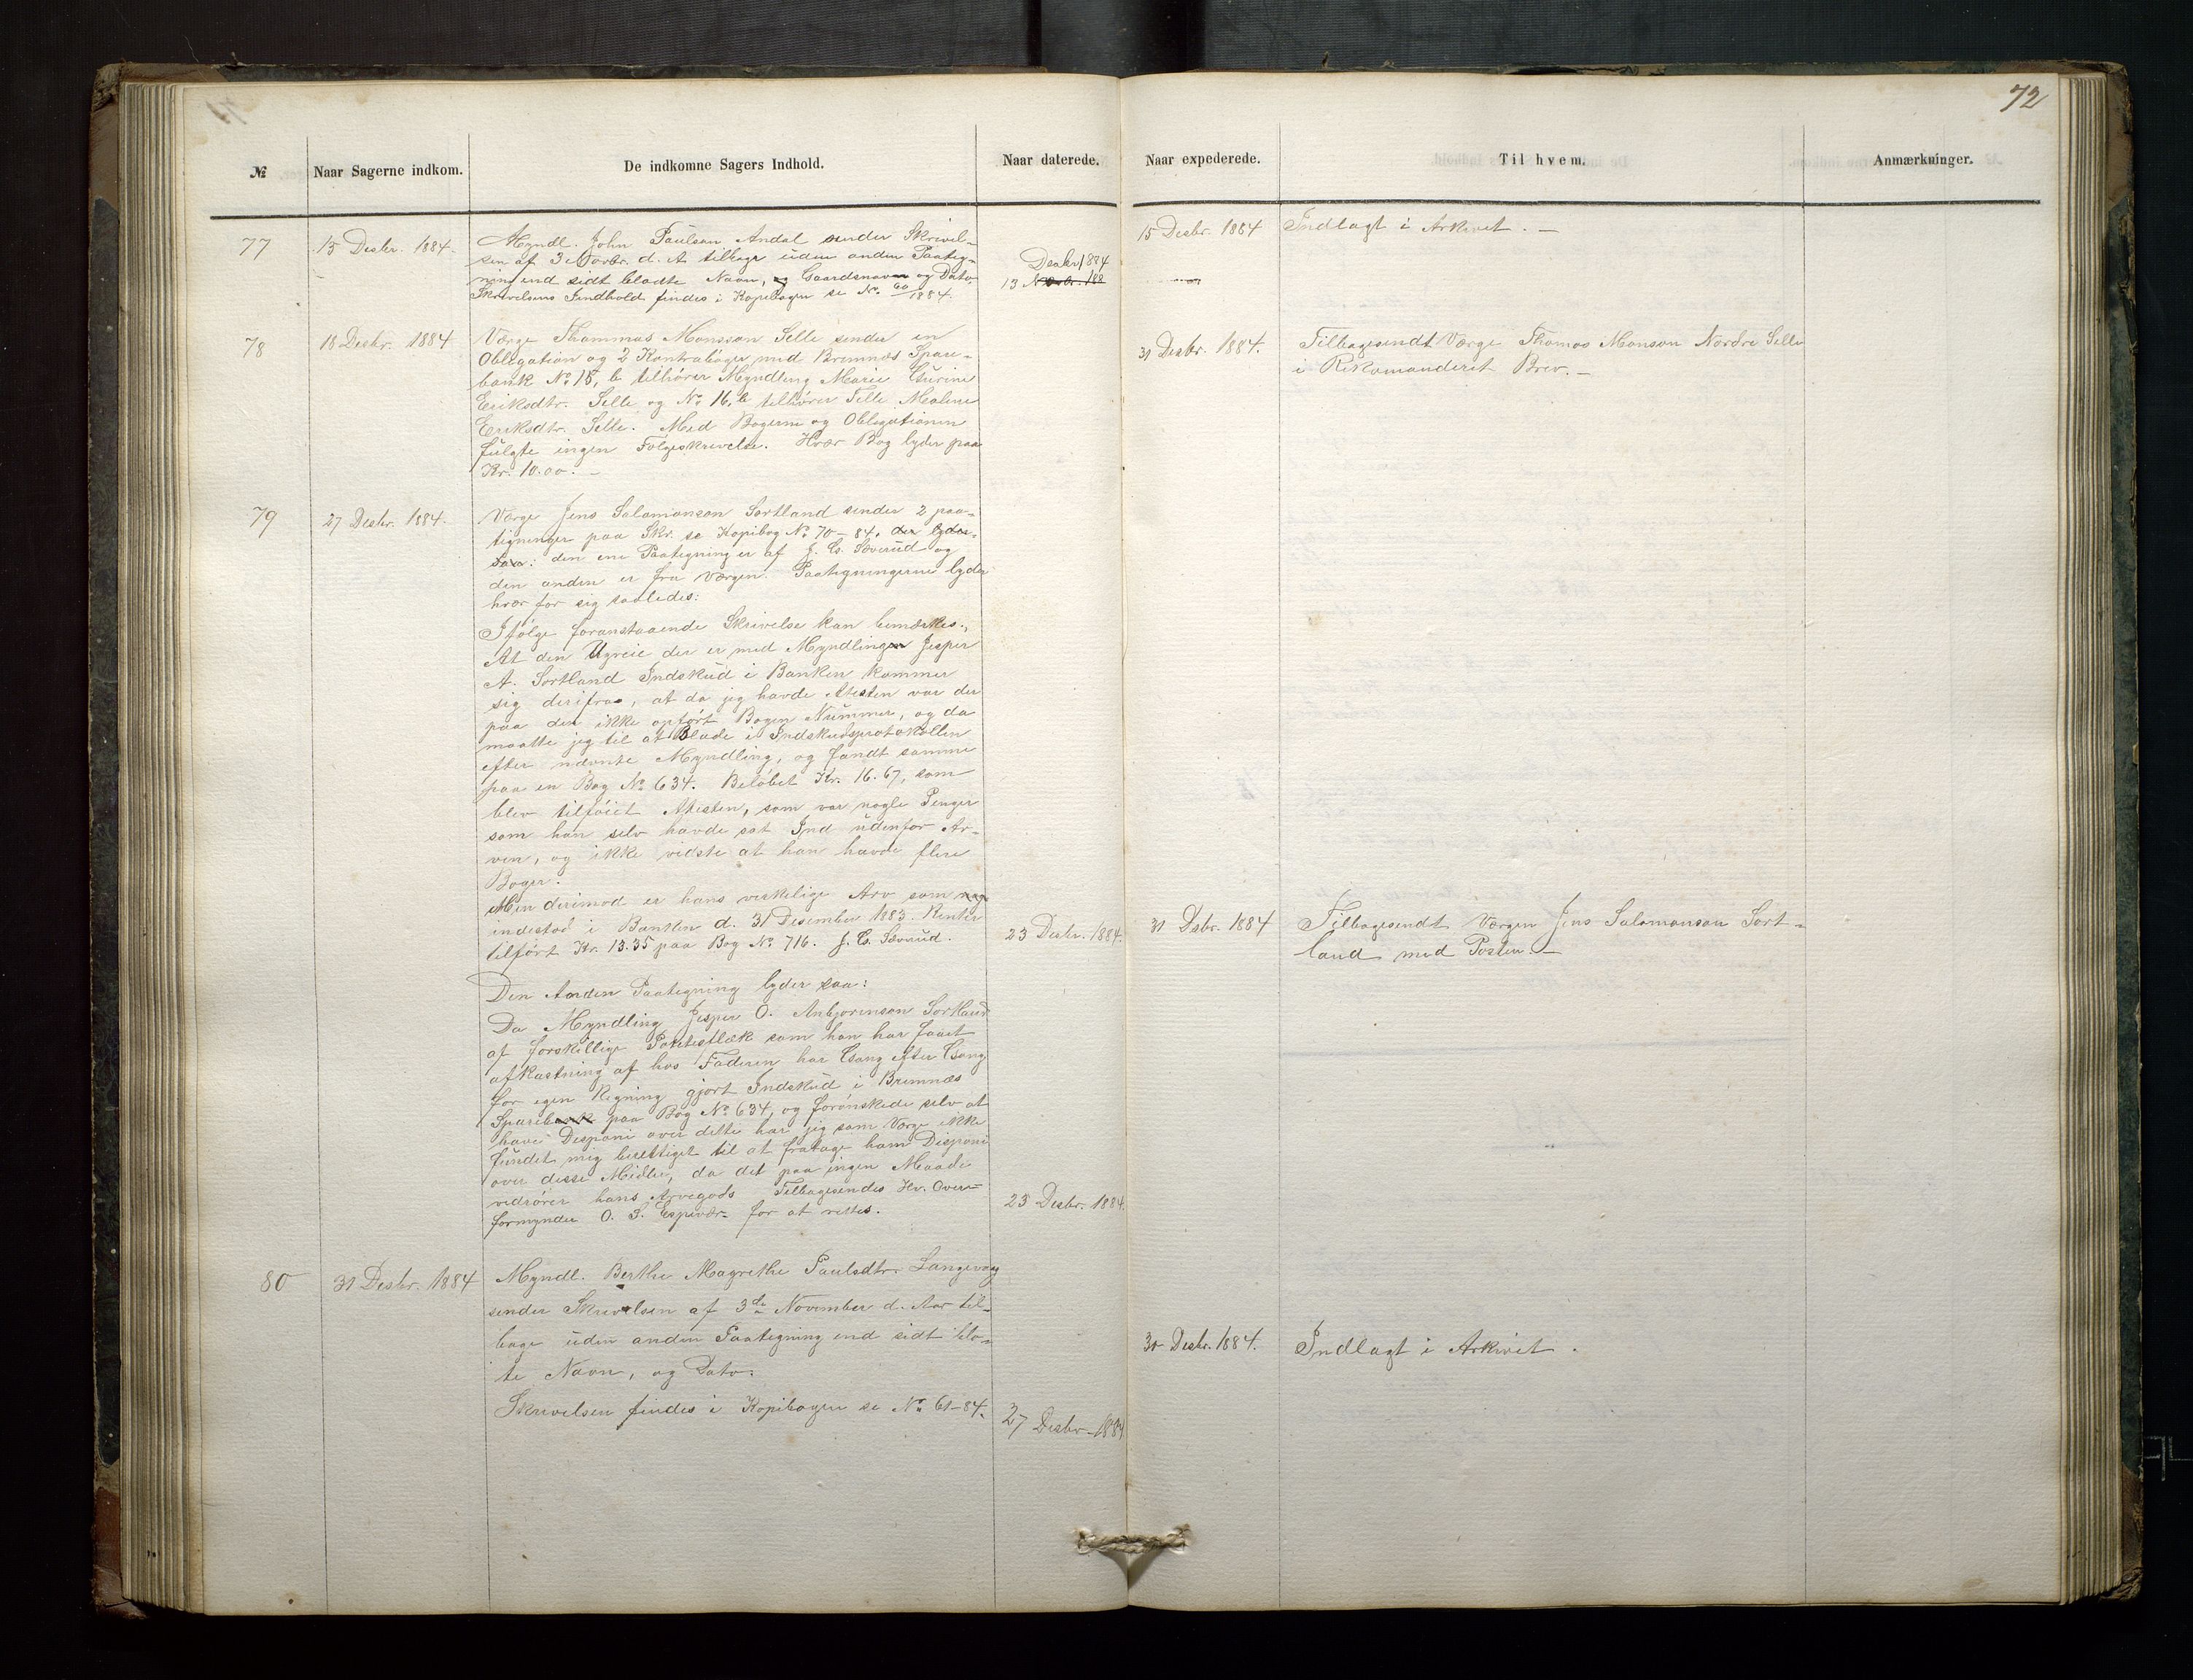 72
№ Naar Sagerne indkom. De indkomne Sagers Indhold. Naar daterede. Naar expederede. Til hvem. Anmærkninger.
77 15 Desbr. 1884.
Myndl. John Paulsen Andal sender Skrivel-
sen af 3 Novbr. d. A tilbage uden anden Paateg-
ning end sidt bladte Navn, og Gaardsnavn og Dato,
Skrivelsens Indhold findes i Kopibogen se No. 60/1884.
Desbr 1884
13 Novbr. 188
15 Desbr. 1884 Indlagt i Arkivet. —
78 18 Desbr. 1884
Værge Thommas Monsson Selle sender en
Obligation og 2 Kontrabøger med Bremnæs Spare-
bank No. 15, b tilhører Myndling Marie Gurine
Eriksdtr. Selle og No 16, b tilhører Telle Malene
Eriksdtr. Selle. Med Bøgerne og Obligationen
fulgte ingen Følgeskrivelse. Hvær Bog lyder paa
Kr. 10.00. —
31 Desbr. 1884. Tilbagesendt Værge Thomas Monson Nordre Selle
i Rekomanderet Brev. —
79 27 Desbr. 1884.
Værge Jens Salamonson Sortland sender 2 paa-
tigninger paa Skr. se Kopibog No 70 - 84. der lyder
saa: den ene Paategning er af J. G. Søverud og
den anden er fra værgen. Paategningerne lyder
hvær for sig saaledes:
Ifølge foranstaaende Skrivelse kan bemærkes.,
At den Ugreie der er med Myndlingen Jesper
A. Sortland Indskud i Banken kommer
sig derifraa, at da jeg havde Atesten var der
paa den ikke opført Bogen Nummer, og da
maatte jeg til at Blade i Indskudsprotokollen
efter nævnte Myndling, og fandt samme
paa en Bog No 634. Beløbet Kr. 16.67, som
blev tilføiet Atesten, som var nogle Penger
som han selv havde sat Ind udenfor Ar-
ven, og ikke vidste at han havde flere
Bøger.
Men derimod er hans verkelige Arv som
indestod i Banken d. 31 Desember 1883. Renter
tilført Kr. 13.35 paa Bog No 716. J. G. Søverud.
23 Desbr. 1884.
31 Dsbr. 1884 Tilbagesendt Værgen Jens Salomonson Sort-
land med Posten. —
Den Anden Paategning lyder saa:
Da Myndling Jesper O. Anbjørnson Sortland
af forskillige som han har faaet
afkastning af hos Faderen har Gang efter Gang
for egen Regning gjort Indskud i Bremnæs
Sparebank paa Bog No 634, og forønskede selv at
have Disponi over dette har jeg som Værge ikke
fundet mig berettiget til at fratage ham Disponi
over disse Midler, da det paa ingen Maade
vedrører hans Arvegods Tilbagesendes Hr. Over-
formynder O. S. Espevær for at rettes.
23 Desbr. 1884.
80 31 Desbr. 1884
Myndl. Berthe Magrethe Paulsdtr. Langevaag
sender Skrivelsen af 3de November d. Aar til-
bage uden anden Paategning end sidt blo-
te Navn, og Dato.
Skrivelsen findes i Kopibogen se No 61-84.
27 Desbr. 1884
30 Desbr. 1884. Indlagt i Arkivet .